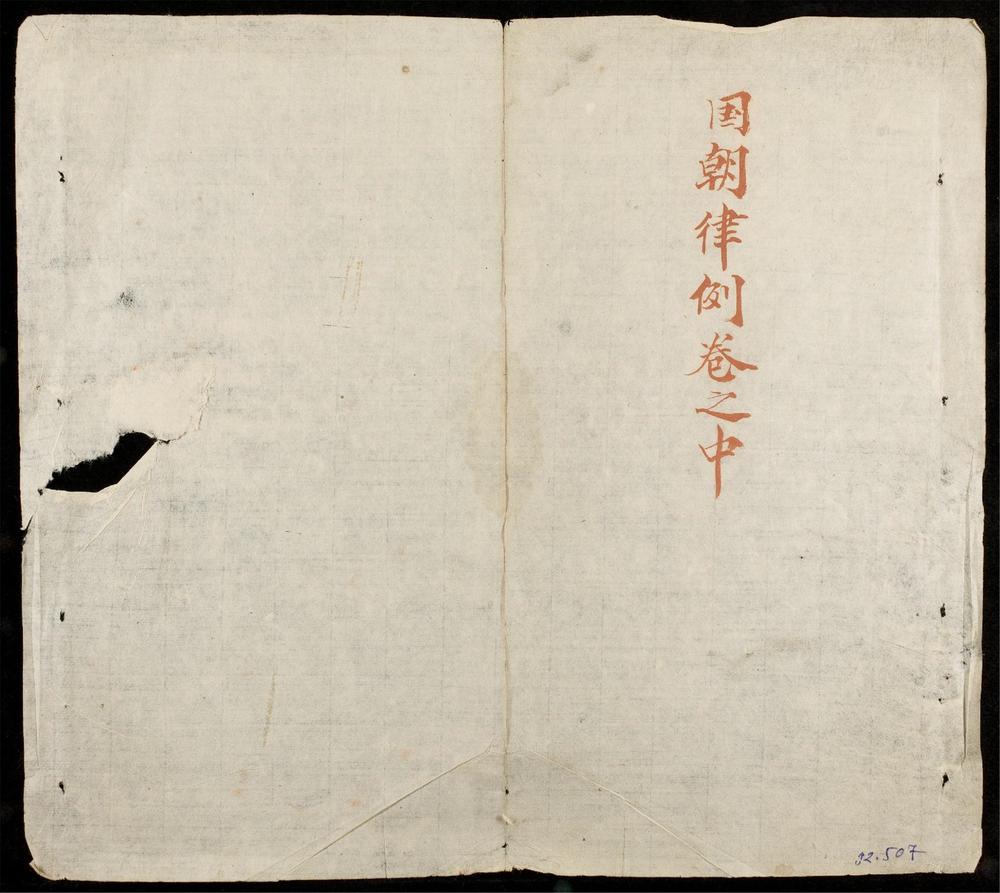 国朝律例卷之中
92.507